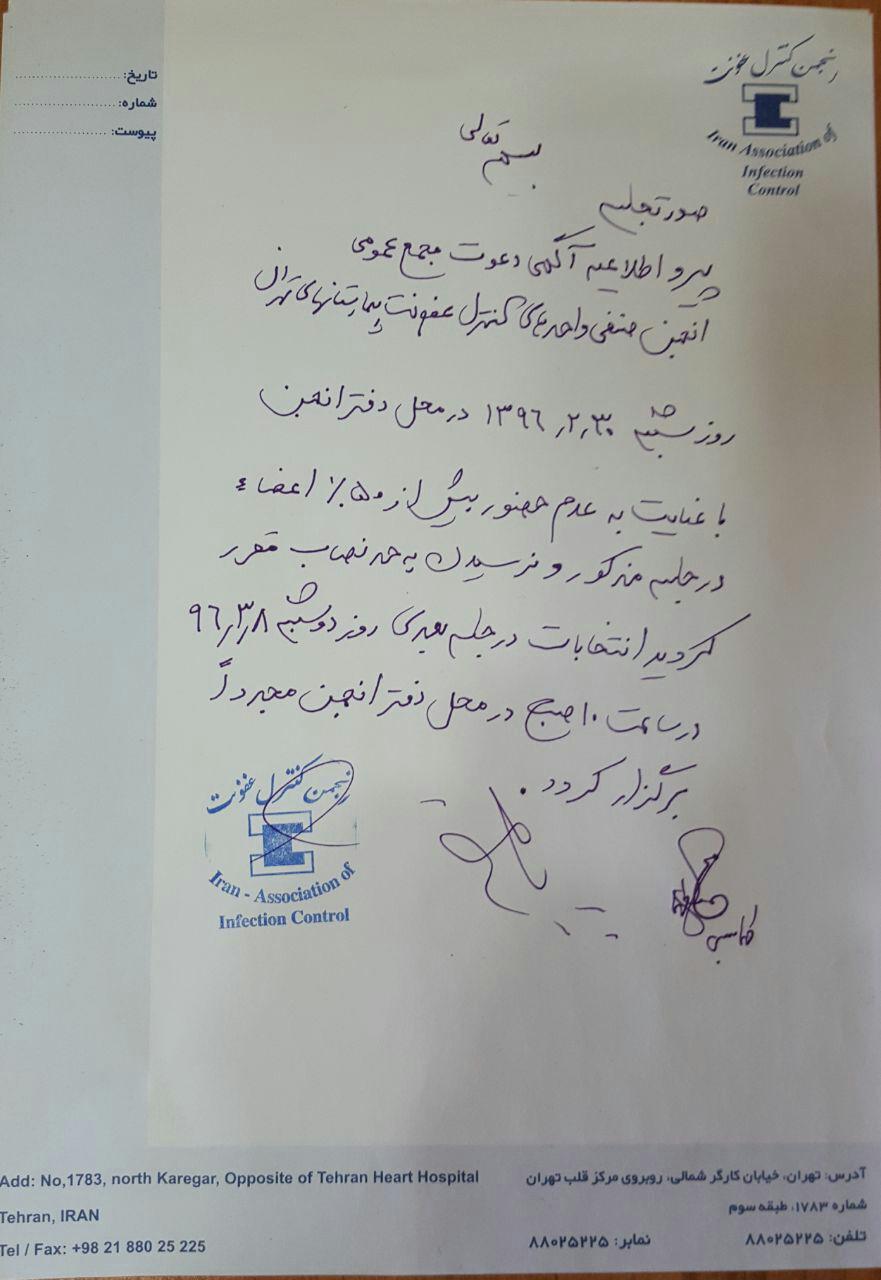 تاریخ:
شماره:
پیوست:
انجمن کنترل عفونت
Iran Association of
Infection
Control
بسمه تعالی
صورتجلسه
پیرو اطلاعیه آگهی دعوت مجمع عمومی
انجمن صنفی واحدهای کنترل عفونت بیمارستانهای تهران
روز شنبه ۱۳۹۶٫۲٫۳۰ در محل دفتر انجمن
با عنایت به عدم حضور بیش از ۵۰٪ اعضاء
در جلسه مذکور و نرسیدن به حد نصاب مقرر
گردید انتخابات در جلسه بعدی روز دوشنبه ۹۶٫۳٫۸
در ساعت ۱۰ صبح در محل دفتر انجمن مجدداً
برگزار گردد.
انجمن کنترل عفونت
Iran - Association of
Infection Control
Add: No,1783, north Karegar, Opposite of Tehran Heart Hospital
Tehran, IRAN
Tel / Fax: +98 21 880 25 225
آدرس: تهران، خیابان کارگر شمالی، روبروی مرکز قلب تهران
شماره ۱۷۸۳، طبقه سوم
تلفن: ۸۸۰۲۵۲۲۵ نمابر: ۸۸۰۲۵۲۲۵